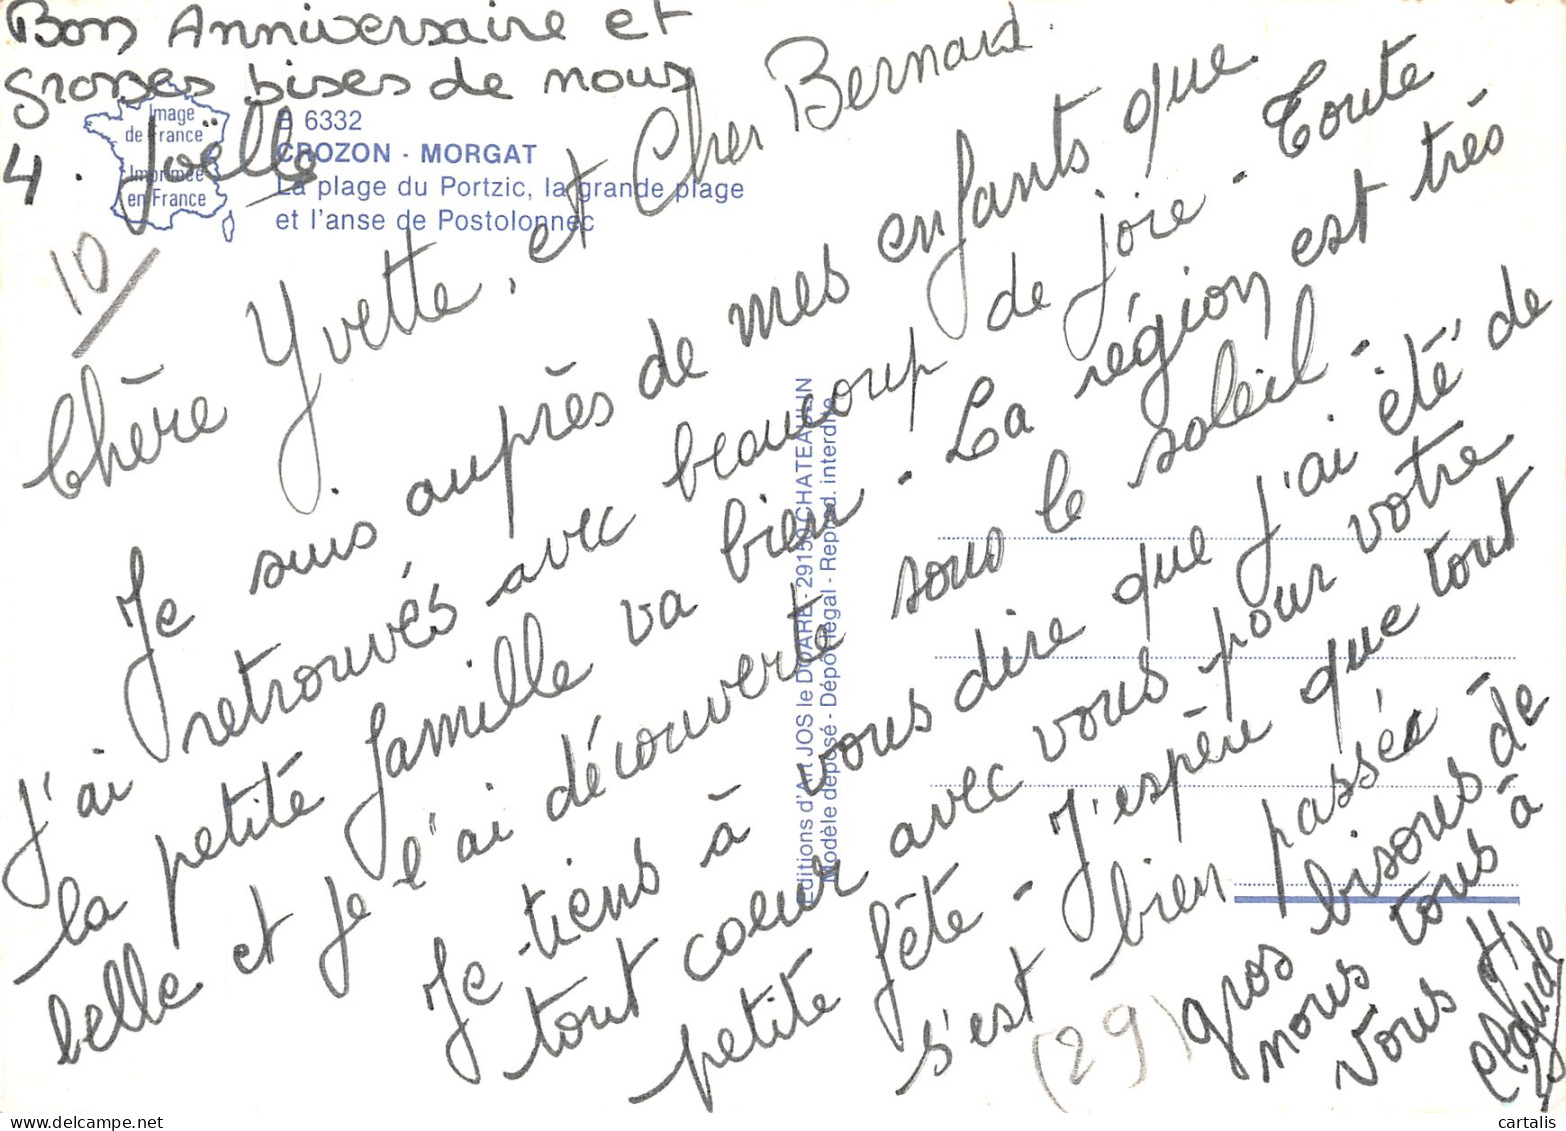 Bon Anniversaire et
grosses bises de nous
4. Joëlle
Image
de France
Imprimée
en France
B 6332
CROZON - MORGAT
La plage du Portzic, la grande plage
et l'anse de Postolonnec
10
Chère Yvette, et Cher Bernard.
Je suis auprès de mes enfants que
j'ai retrouvés avec beaucoup de joie - Toute
la petite famille va bien - La région est très
belle et je l'ai découverte sous le soleil -
Je tiens à vous dire que j'ai été de
tout coeur avec vous pour votre
petite fête - J'espère que tout
s'est bien passée
gros bisous de
nous tous à
vous 4
Claude
(29)
Editions d'Art JOS le DOARÉ - 29150 CHATEAULIN
Modèle déposé - Dépôt légal - Reprod. interdite
cartalis